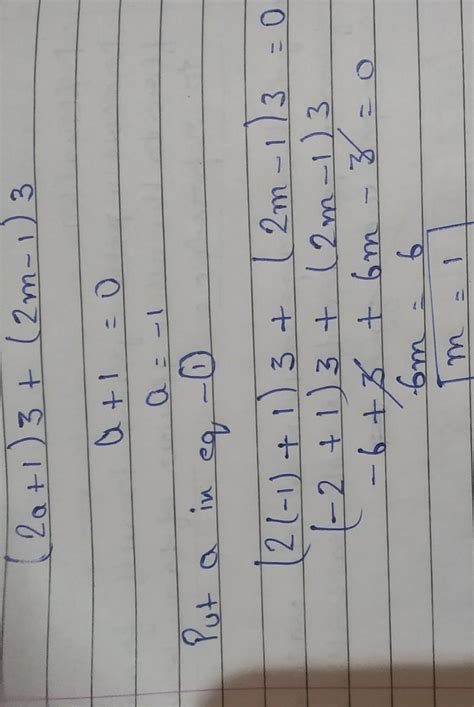 (2a+1)3 + (2m-1)3
a+1 = 0
a = -1
Put a in eq - ①
(2(-1)+1)3 + (2m-1)3 = 0
(-2+1)3 + (2m-1)3
-6+3 + 6m - 3 = 0
6m = 6
m = 1